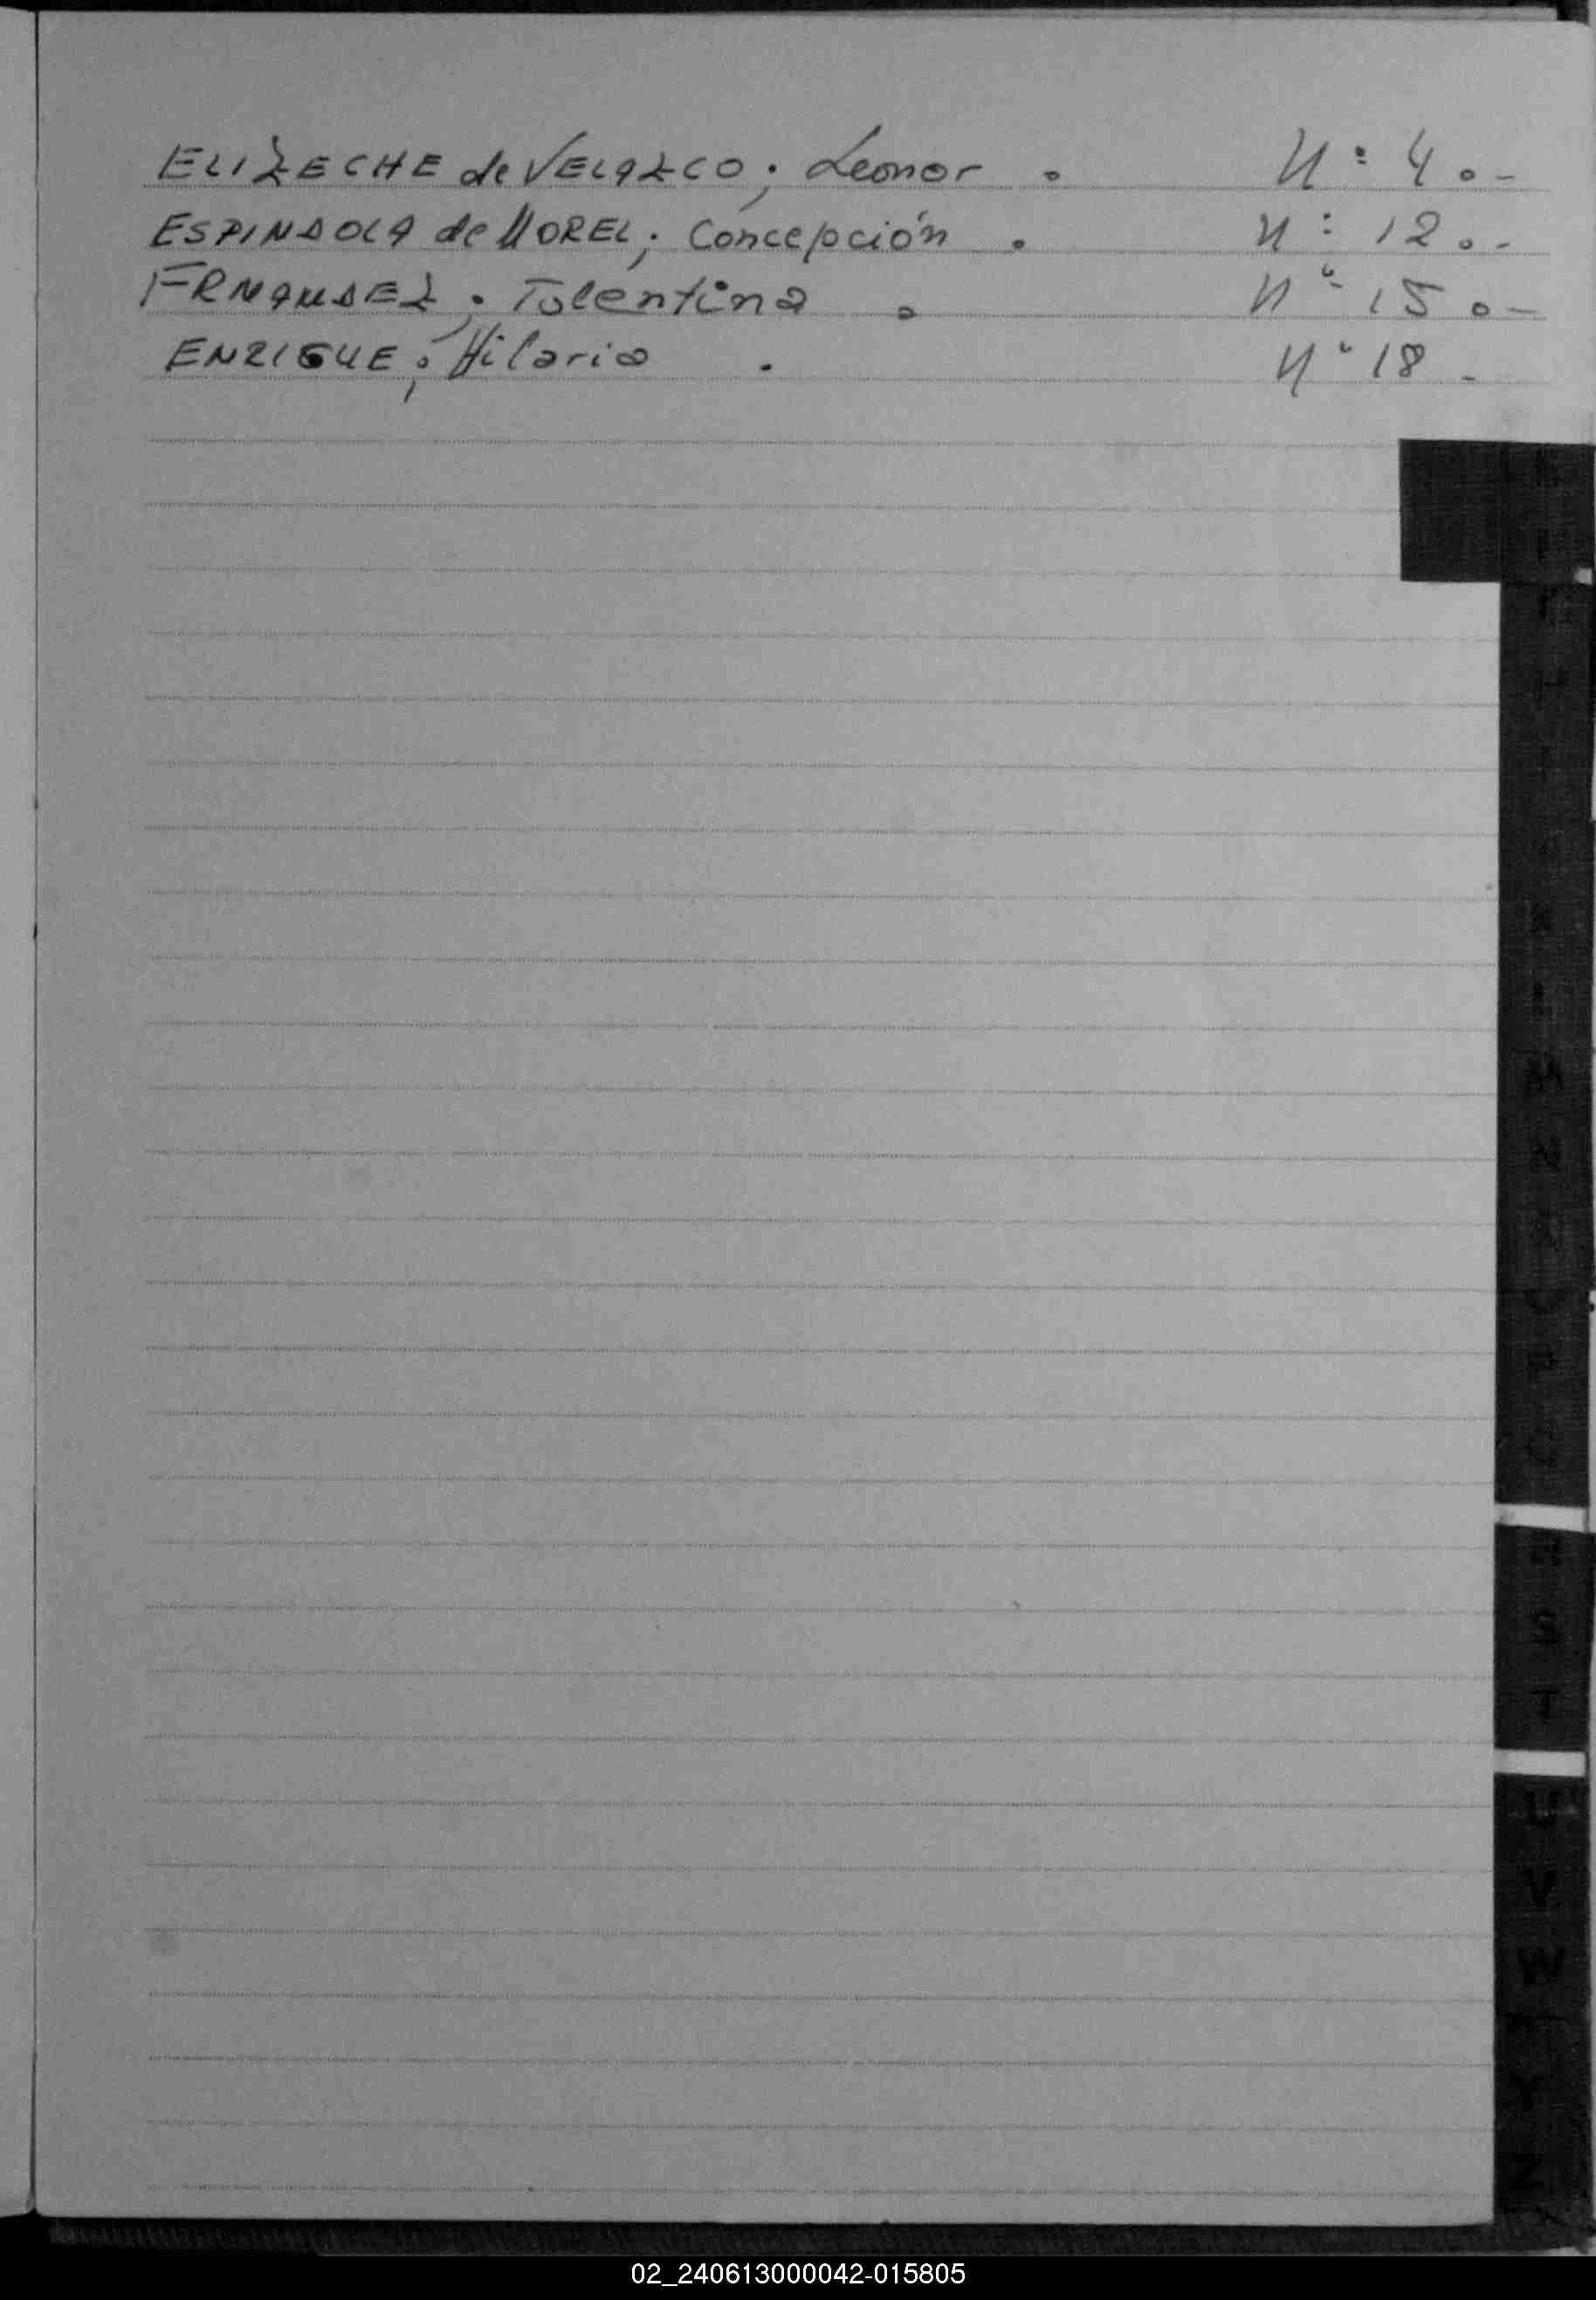 ELIZECHE de VELAZCO; Leonor . N: 4.-
ESPINDOLA de MOREL; Concepción . N: 12.-
FRNANDEZ; Tolentina . N° 15.-
ENRIQUE; Hilario . N° 18.-
S
T
U
V
W
Y
Z
02_240613000042-015805